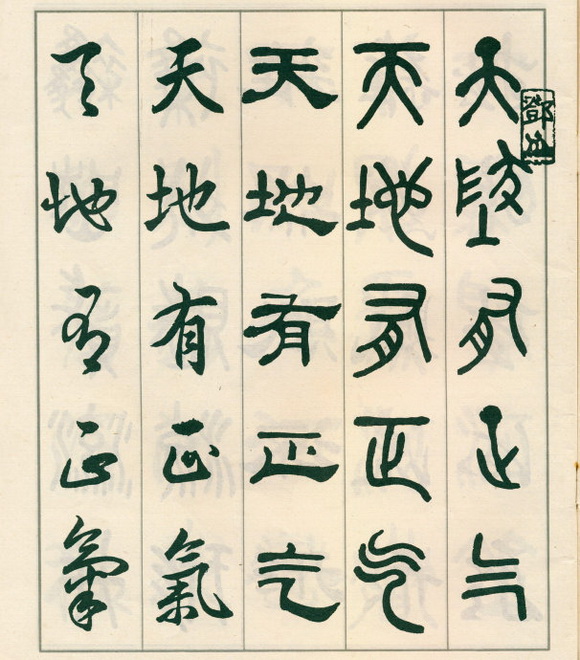 天墬有正气
天地有正气
天地有正气
天地有正氣
天地有正氣
鄧